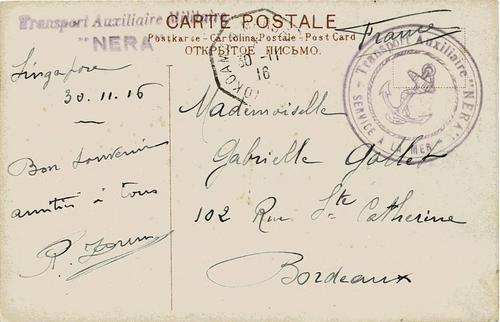 Transport Auxiliaire Militaire
"NERA"
CARTE POSTALE
Postkarte - Cartolina Postale - Post Card
ОТКРЫТОЕ ПИСЬМО.
France
30 -11
16
Transport Auxiliaire "NERA"
SERVICE A LA MER
Singapore
30.11.16
Bon souvenir
amitiés à tous
Mademoiselle
Gabrielle
102 Rue Ste Catherine
Bordeaux